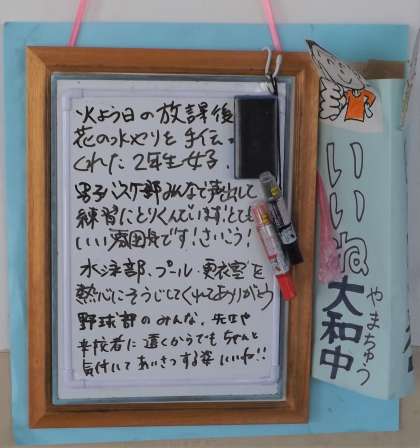 火よう日の放課後
花の水やりを手伝っ
くれた2年生女子.
男子バスケ部みんなで声出して
練習にとりくんでいます!とても
いい雰囲気です!さいこう!
水泳部、プール・更衣室を
熱心にそうじしてくれてありがとう
野球部のみんな、先生や
来校者に遠くからでもちゃんと
気付いてあいさつする姿いいね!!
いいね
やまちゅう
大和中